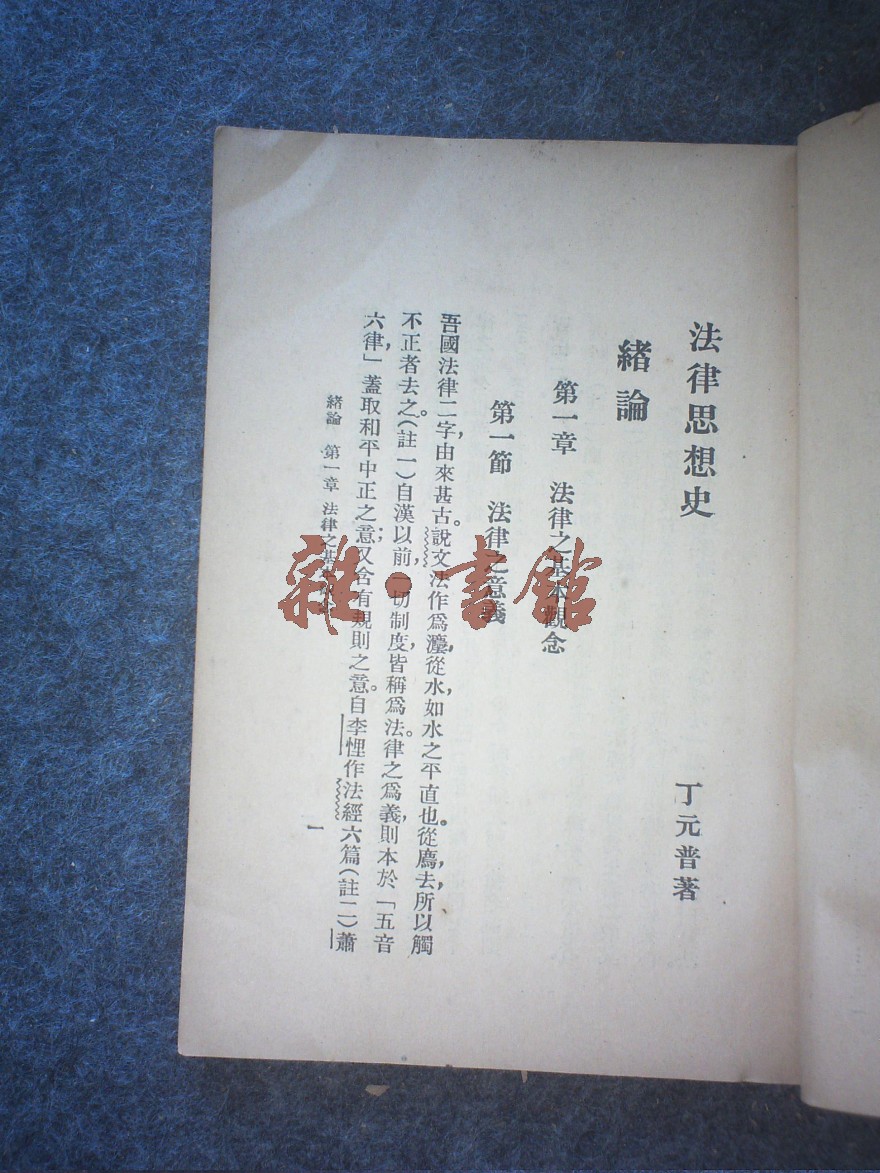 法律思想史
丁元普著
緒論
第一章 法律之基本觀念
第一節 法律之意義
吾國法律二字，由來甚古。說文法作爲灋，從水，如水之平直也。從廌去，所以觸
不正者去之。（註一）自漢以前，一切制度，皆稱爲法。律之爲義，則本於「五音
六律」，蓋取和平中正之意；又含有規則之意。自李悝作法經六篇（註二）蕭
緒論 第一章 法律之基
一
雜·書館